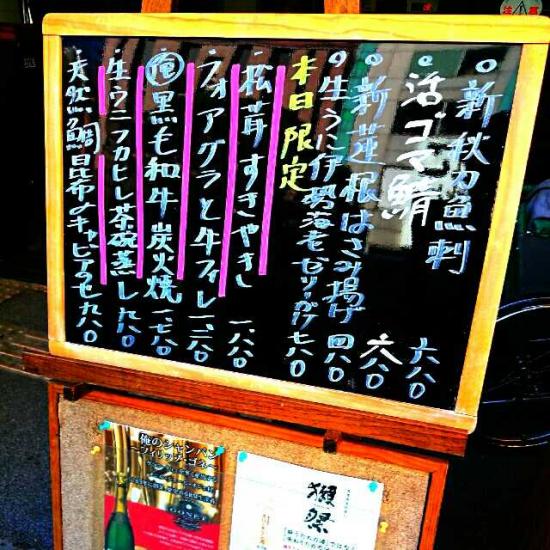 ◦新秋刀魚刺 六八〇
◦活ゴマ鯖 六八〇
◦新蓮根はさみ揚げ 四八〇
◦生うに伊勢海老ゼリーがけ 七八〇
本日限定
・松茸すきやき 一、八〇
・フォアグラと牛フィレ 一、二八〇
・俺黒毛和牛炭火焼 一、七八〇
・生ウニフカヒレ茶碗蒸し 九八〇
・天然鯛昆布〆キャビアのせ 九八〇
俺のシャンパン
〜フィリップ・ゴネ〜
GONET
獺祭